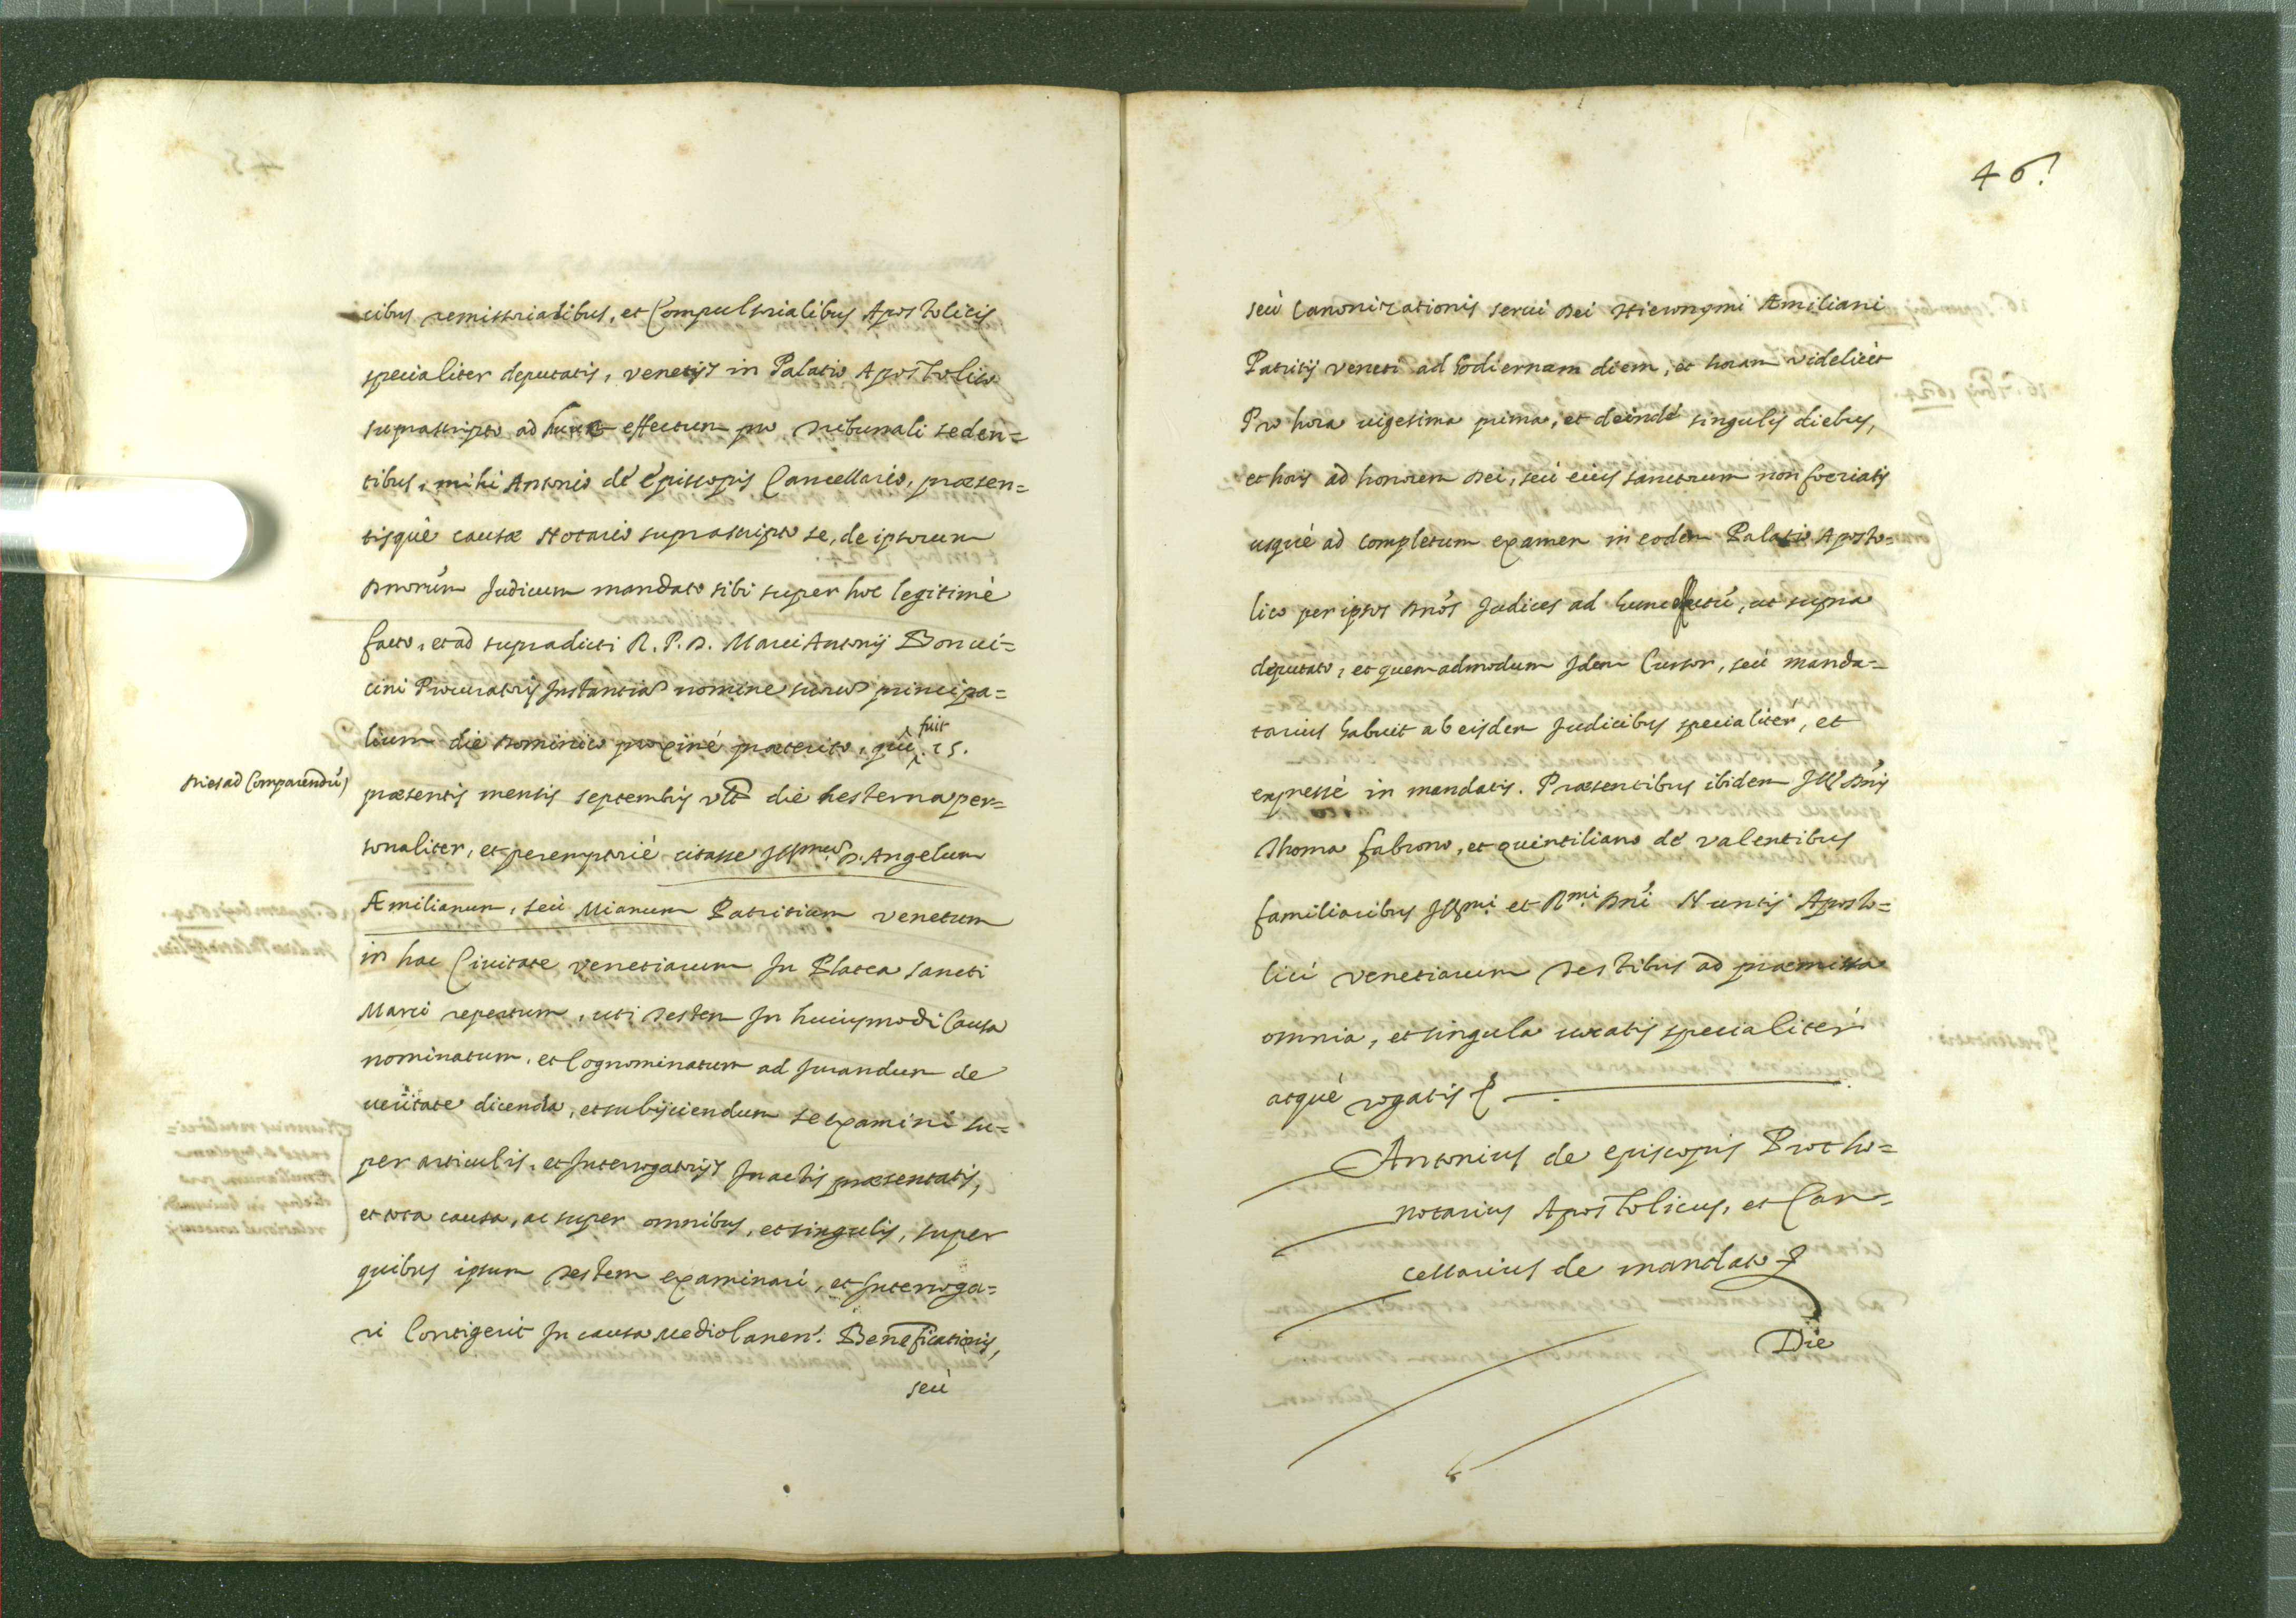 cibus remissorialibus, et Compulsorialibus Apostolicis
specialiter deputatis, venetijs in Palatio Apostolico
suprascripto ad hunc effectum pro tribunali seden=
tibus, mihi Antonio de Episcopis Cancellario, præsen=
tisquè causæ Notario suprascripto se, de ipsorum
Dnorum Judicum mandato sibi super hoc legitimè
facto, et ad supradicti R. P. D. Marci Antonij Bonui=
cini Procuratoris Instantia nomine suorum principa=
lium die Dominico proximè præterito, qui fuit 15.
Dies ad Comparendũ
præsentis mensis septembris vltª die hesterna per=
sonaliter, et peremptoriè citasse Illmum D. Angelum
Æmilianum, seù Mianum Patritium venetum
in hac Ciuitate venetiarum In Platea sancti
Marci repertum, uti testem In huiusmodi Causa
nominatum, et Cognominatum ad Jurandum de
ueritate dicenda, et subijciendum se examini su=
per articulis, et Interrogatorijs In actis præsentatis,
et tota causa, ac super omnibus, et singulis, super
quibus ipsum testem examinari, et Interroga=
ri Contigerit In causa Mediolanen. Beneficationis,
seù
46.
seù Canonizationis serui Dei Hieronymi Æmiliani
Patritij veneti ad hodiernam diem, et horam videlicèt
Pro hora uigesima prima, et deindè singulis diebus,
et horis ad honorem Dei, seù eius sanctorum non foeriatis
usquè ad completum examen in eodem Palatio Aposto=
lico per ipsos Dnos Judices ad hunc effectũ, ut supra
deputato, et quemadmodum Idem Cursor, seù manda=
tarius habuit ab eisdem Judicibus specialitèr, et
expressè in mandatis. Præsentibus ibidem Ill. Dnis
Thoma fabrono, et quintiliano de valentibus
familiaribus Illmi et Rmi Dni Nuntij Aposto=
lici venetiarum testibus ad præmissa
omnia, et singula uocatis specialitèr
atquè rogatis
Antonius de episcopis Protho=
notarius Apostolicus, et Can=
cellarius de mandato
Die